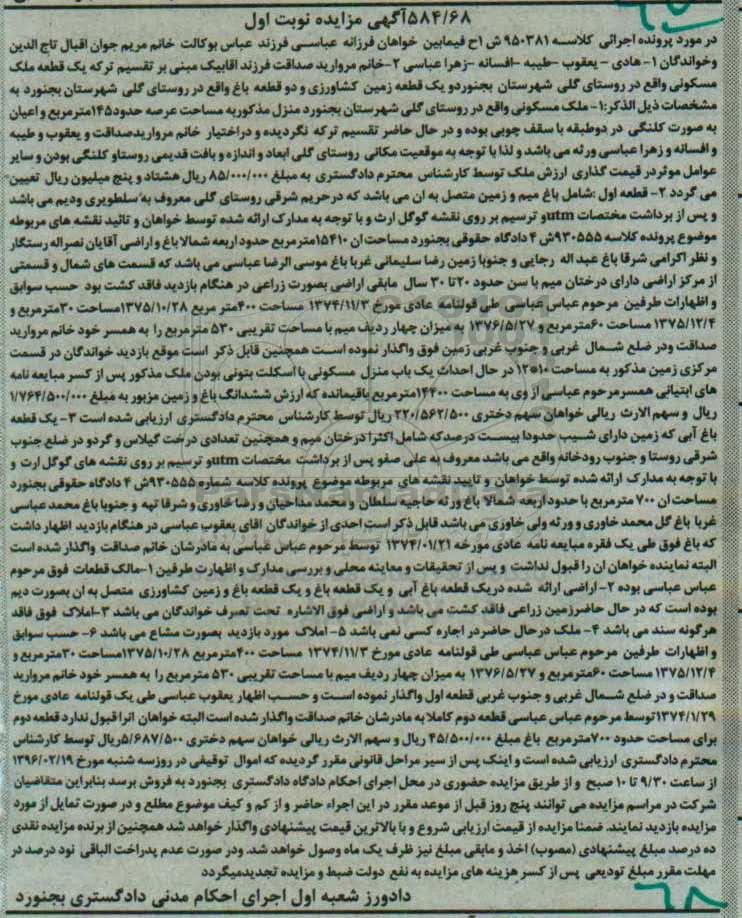 ۵۸۴/۶۸آگهی مزایده نوبت اول
در مورد پرونده اجرائی کلاسه ۹۵۰۳۸۱ ش ۱ح فیمابین خواهان فرزانه عباسی فرزند عباس بوکالت خانم مریم جوان اقبال تاج الدین
وخواندگان ۱- هادی - یعقوب -طیبه -افسانه -زهرا عباسی ۲-خانم مروارید صداقت فرزند اقابیک مبنی بر تقسیم ترکه یک قطعه ملک
مسکونی واقع در روستای گلی شهرستان بجنوردو یک قطعه زمین کشاورزی و دو قطعه باغ واقع در روستای گلی شهرستان بجنورد به
مشخصات ذیل الذکر:۱- ملک مسکونی واقع در روستای گلی شهرستان بجنورد منزل مذکوربه مساحت عرصه حدود۱۴۵مترمربع و اعیان
به صورت کلنگی در دوطبقه با سقف چوبی بوده و در حال حاضر تقسیم ترکه نگردیده و دراختیار خانم مرواریدصداقت و یعقوب و طیبه
و افسانه و زهرا عباسی ورثه می باشد و لذا با توجه به موقعیت مکانی روستای گلی ابعاد و اندازه و بافت قدیمی روستاو کلنگی بودن و سایر
عوامل موثردر قیمت گذاری ارزش ملک توسط کارشناس محترم دادگستری به مبلغ ۸۵/۰۰۰/۰۰۰ ریال هشتاد و پنج میلیون ریال تعیین
می گردد ۲- قطعه اول :شامل باغ میم و زمین متصل به ان می باشد که درحریم شرقی روستای گلی معروف به سلطویری ودیم می باشد
و پس از برداشت مختصات utmو ترسیم بر روی نقشه گوگل ارث و با توجه به مدارک ارائه شده توسط خواهان و تائید نقشه های مربوطه
موضوع پرونده کلاسه ۹۳۰۵۵۵ش ۴ دادگاه حقوقی بجنورد مساحت ان ۱۵۴۱۰مترمربع حدود اربعه شمالا باغ و اراضی آقایان نصراله رستگار
و نظر اکرامی شرقا باغ عبد اله رجایی و جنوبا زمین رضا سلیمانی غربا باغ موسی الرضا عباسی می باشد که قسمت های شمال و قسمتی
از مرکز اراضی دارای درختان میم با سن حدود ۲۰تا ۳۰ سال مابقی اراضی بصورت زراعی در هنگام بازدید فاقد کشت بود حسب سوابق
و اظهارات طرفین مرحوم عباس عباسی طی قولنامه عادی مورخ ۱۳۷۴/۱۱/۳ مساحت ۴۰۰متر مربع ۱۳۷۵/۱۰/۲۸مساحت ۳۰مترمربع و
۱۳۷۵/۱۲/۴ مساحت ۶۰مترمربع و ۱۳۷۶/۵/۲۷ به میزان چهار ردیف میم با مساحت تقریبی ۵۳۰ مترمربع را به همسر خود خانم مروارید
صداقت ودر ضلع شمال غربی و جنوب غربی زمین فوق واگذار نموده است همچنین قابل ذکر است موقع بازدید خواندگان در قسمت
مرکزی زمین مذکور به مساحت ۱۰*۱۲ در حال احداث یک باب منزل مسکونی با اسکلت بتونی بودن ملک مذکور پس از کسر مبایعه نامه
های ابتیاعی همسرمرحوم عباسی از وی به مساحت ۱۴۴۰۰مترمربع باقیمانده که ارزش ششدانگ باغ و زمین مزبور به مبلغ ۱/۷۶۴/۵۰۰/۰۰۰
ریال و سهم الارث ریالی خواهان سهم دختری ۲۲۰/۵۶۲/۵۰۰ ریال توسط کارشناس محترم دادگستری ارزیابی شده است ۳- یک قطعه
باغ آبی که زمین دارای شیب حدودا بیست درصدکه شامل اکثرا درختان میم و همچنین تعدادی درخت گیلاس و گردو در ضلع جنوب
شرقی روستا و جنوب رودخانه واقع می باشد معروف به علی صفو پس از برداشت مختصات utmو ترسیم بر روی نقشه های گوگل ارث و
با توجه به مدارک ارائه شده توسط خواهان و تایید نقشه های مربوطه موضوع پرونده کلاسه شماره ۹۳۰۵۵۵ش ۴ دادگاه حقوقی بجنورد
مساحت ان ۷۰۰ مترمربع با حدود اربعه شمالا باغ ورثه حاجیه سلطان و محمد مداحیان و رضا خاوری و شرقا تپه و جنوبا باغ محمد عباسی
غربا باغ گل محمد خاوری و ورثه ولی خاوری می باشد قابل ذکر است احدی از خواندگان اقای یعقوب عباسی در هنگام بازدید اظهار داشت
که باغ فوق طی یک فقره مبایعه نامه عادی مورخه ۱۳۷۴/۰۱/۲۱ توسط مرحوم عباس عباسی به مادرشان خانم صداقت واگذار شده است
البته نماینده خواهان ان را قبول نداشت و پس از تحقیقات و معاینه محلی و بررسی مدارک و اظهارت طرفین ۱-مالک قطعات فوق مرحوم
عباس عباسی بوده ۲- اراضی ارائه شده دریک قطعه باغ آبی و یک قطعه باغ و یک قطعه باغ و زمین کشاورزی متصل به ان بصورت دیم
بوده است که در حال حاضرزمین زراعی فاقد کشت می باشد و اراضی فوق الاشاره تحت تصرف خواندگان می باشد ۳-املاک فوق فاقد
هرگونه سند می باشد ۴- ملک درحال حاضردر اجاره کسی نمی باشد ۵- املاک مورد بازدید بصورت مشاع می باشد ۶- حسب سوابق
و اظهارات طرفین مرحوم عباس عباسی طی قولنامه عادی مورخ ۱۳۷۴/۱۱/۳ مساحت ۴۰۰مترمربع ۱۳۷۵/۱۰/۲۸مساحت ۳۰مترمربع و
۱۳۷۵/۱۲/۴ مساحت ۶۰مترمربع و ۱۳۷۶/۵/۲۷ به میزان چهار ردیف میم با مساحت تقریبی ۵۳۰ مترمربع را به همسر خود خانم مروارید
صداقت و در ضلع شمال غربی و جنوب غربی قطعه اول واگذار نموده است و حسب اظهار یعقوب عباسی طی یک قولنامه عادی مورخ
۱۳۷۴/۱/۲۹توسط مرحوم عباس عباسی قطعه دوم کاملا به مادرشان خانم صداقت واگذار شده است البته خواهان انرا قبول ندارد قطعه دوم
برای مساحت حدود ۷۰۰مترمربع باغ مبلغ ۴۵/۵۰۰/۰۰۰ ریال و سهم الارث ریالی خواهان سهم دختری ۵/۶۸۷/۵۰۰ریال توسط کارشناس
محترم دادگستری ارزیابی شده است و اینک پس از سیر مراحل قانونی مقرر گردیده که اموال توقیفی در روزسه شنبه مورخ ۱۳۹۶/۰۲/۱۹
از ساعت ۹/۳۰ تا ۱۰ صبح و از طریق مزایده حضوری در محل اجرای احکام دادگاه دادگستری بجنورد به فروش برسد بنابراین متقاضیان
شرکت در مراسم مزایده می توانند پنج روز قبل از موعد مقرر در این اجراء حاضر و از کم و کیف موضوع مطلع و در صورت تمایل از مورد
مزایده بازدید نمایند. ضمنا مزایده از قیمت ارزیابی شروع و با بالاترین قیمت پیشنهادی واگذار خواهد شد همچنین از برنده مزایده نقدی
ده درصد مبلغ پیشنهادی (مصوب) اخذ و مابقی مبلغ نیز ظرف یک ماه وصول خواهد شد. ودر صورت عدم پدراخت الباقی نود درصد در
مهلت مقرر مبلغ تودیعی پس از کسر هزینه های مزایده به نفع دولت ضبط و مزایده تجدیدمیگردد
دادورز شعبه اول اجرای احکام مدنی دادگستری بجنورد